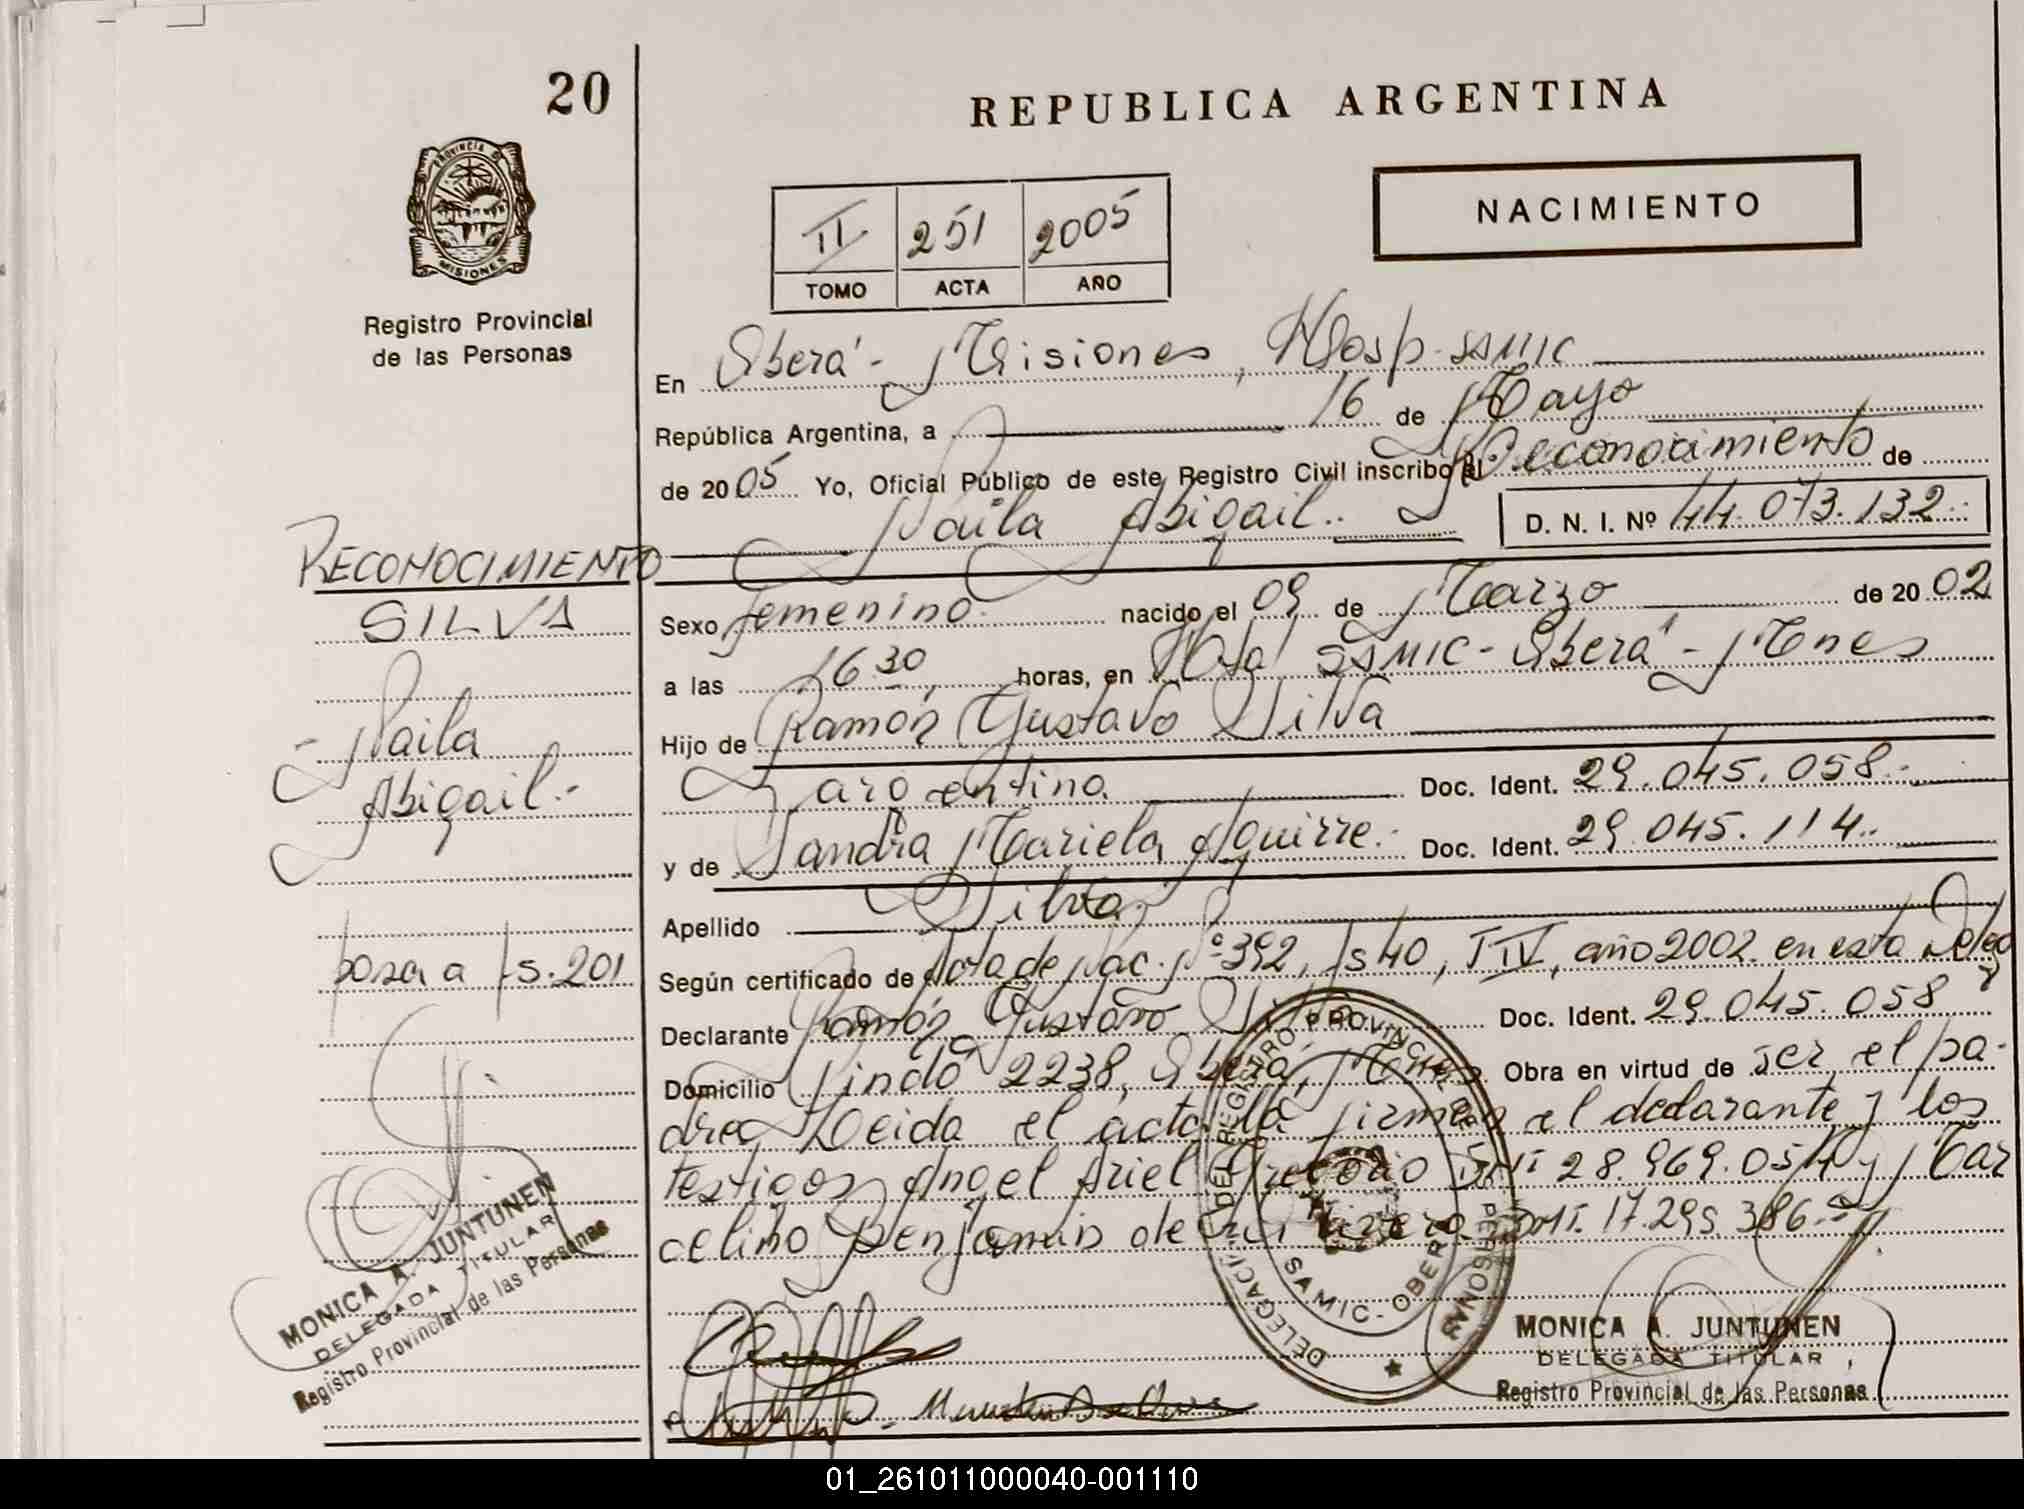 20
REPUBLICA ARGENTINA
PROVINCIA DE
MISIONES
Registro Provincial
de las Personas
II 251 2005
TOMO ACTA AÑO
NACIMIENTO
En Oberá - Misiones, Hosp. SAMIC
República Argentina, a 16 de Mayo
de 2005 Yo, Oficial Público de este Registro Civil inscribo el Reconocimiento de
Naila Abigail.. D. N. I. Nº 44.073.132.-
Sexo femenino. nacido el 09 de Marzo de 2002
a las 16.30 horas, en SAMIC - Oberá - Mnes
Hijo de Ramón Gustavo Silva
argentina Doc. Ident. 29.045.058.-
y de Sandra Mariela Aguirre. Doc. Ident. 29.045.114..
Apellido Silva
Según certificado de Acta de Nac. Nº 392, fs 40, T IV, año 2002 en esta Deleg
Declarante Ramón Gustavo Silva Doc. Ident. 29.045.058
Domicilio 2238, Oberá, Mnes Obra en virtud de ser el pa-
dre. Leida el acta la firman el declarante y los
testigos Angel Ariel DNI 28.969.054 y Mar
celino Benjamin de DNI. 17.295.386.-
RECONOCIMIENTO
SILVA
- Naila
Abigail.-
pasa a fs. 201
MONICA A. JUNTUNEN
DELEGADA TITULAR
Registro Provincial de las Personas
DELEGACIÓN DEL REGISTRO PROVINCIAL DE LAS PERSONAS
SAMIC - OBERÁ
MONICA A. JUNTUNEN
DELEGADA TITULAR
Registro Provincial de las Personas
01_261011000040-001110